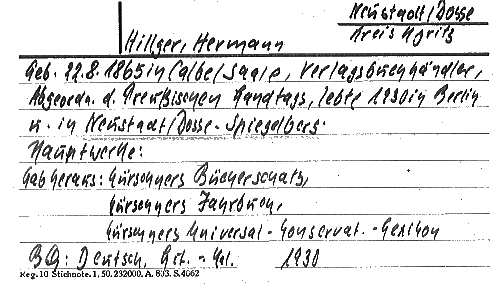 Neustadt/Dosse
Hillger, Hermann
Kreis Kyritz
Geb. 22.8.1865 in Calbe/Saale, Verlagsbuchhändler,
Abgeordn. d. Preußischen Landtags, lebte 1930 in Berlin
u. in Neustadt/Dosse-Spiegelberg.
Hauptwerke:
Gab heraus: Kürschners Bücherschatz,
Kürschners Jahrbuch,
Kürschners Universal-Konversat.-Lexikon
BQ: Deutsch. Lit.-Kal. 1930
Keg. 10 Stichnote. 1, 50. 232000. A. 803. S. 4062